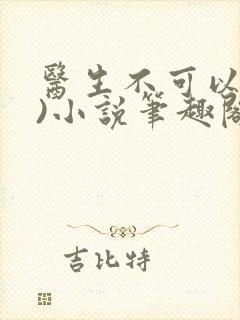 醫生不可以
)小說筆趣閣
吉比特